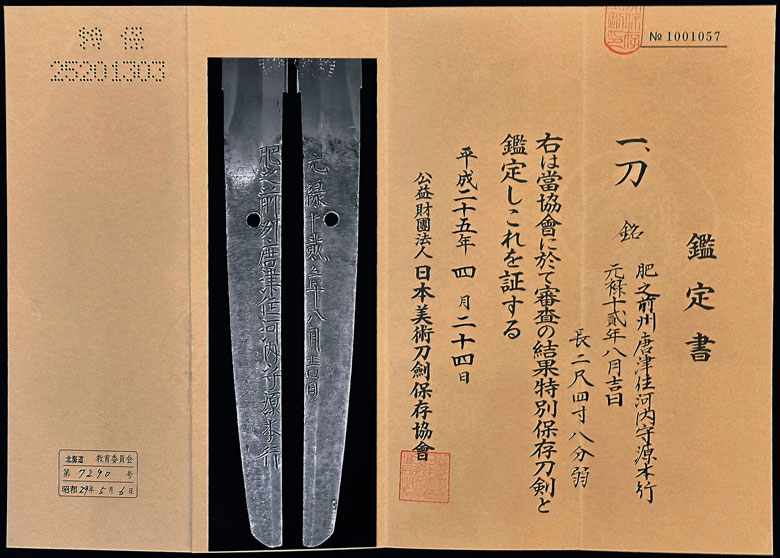 № 1001057
鑑定書
一、刀
銘
肥之前州唐津住河内守源本行
元禄十貳年八月吉日
長二尺四寸八分弱
右は當協會に於て審査の結果特別保存刀剣と
鑑定しこれを証する
平成二十五年四月二十四日
公益財團法人日本美術刀劍保存協會
元禄十貳年八月吉日
肥之前州唐津住河内守源本行
特保
25201303
北海道 教育委員会
第7290号
昭和29年5月6日